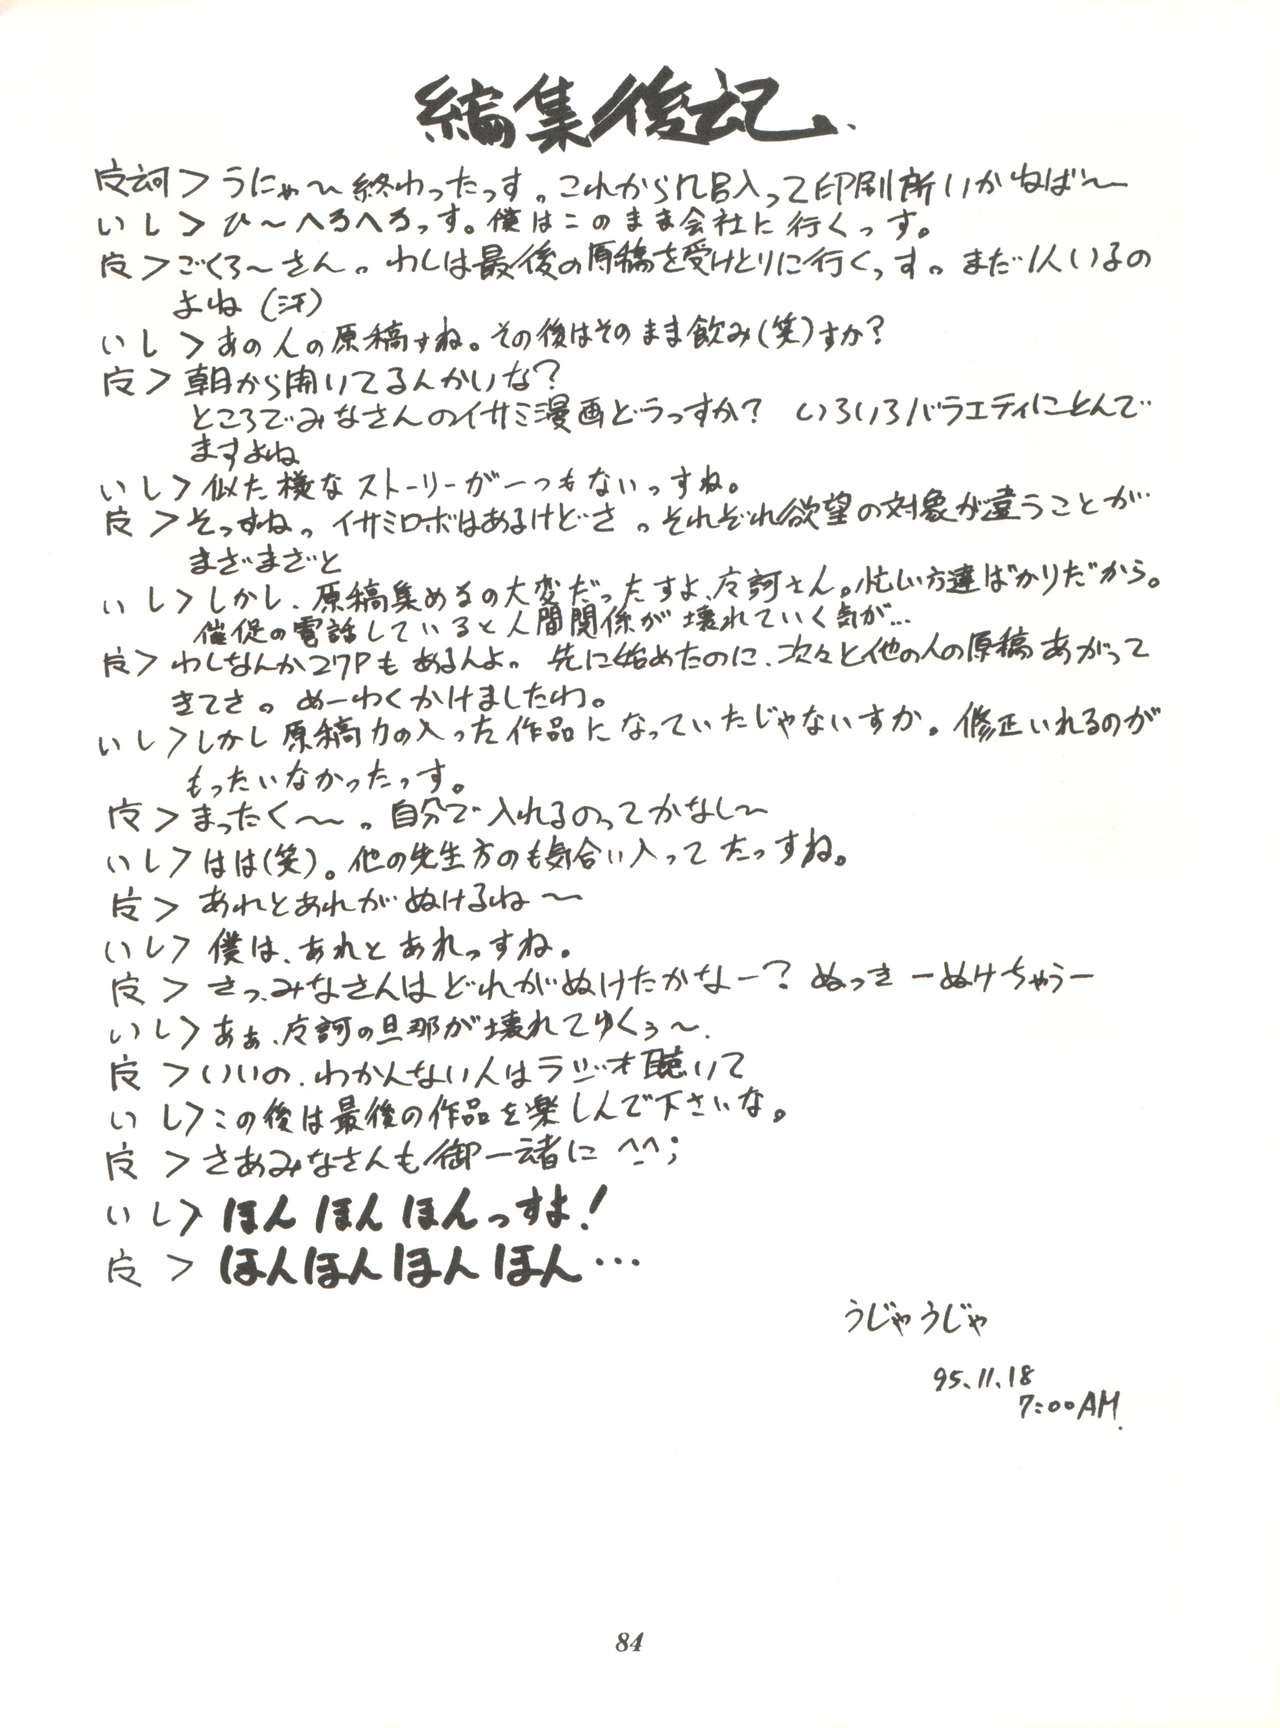 編集後記
訶>うにゃ〜終わったっす。これから風呂入って印刷所いかねば〜
いし>ひ〜へろへろっす。僕はこのまま会社に行くっす。
>ごくろ〜さん。わしは最後の原稿を受けとりに行くっす。まだ1人いるの
よね(汗)
いし>あの人の原稿すね。その後はそのまま飲み(笑)すか?
>朝から開いてるんかいな?
ところでみなさんのイサミ漫画どうっすか? いろいろバラエティにとんで
ますよね
いし>似た様なストーリーが一つもないっすね。
>そっすね。イサミロボはあるけどさ。それぞれ欲望の対象が違うことが
まざまざと
いし>しかし、原稿集めるの大変だったすよ、訶さん。忙しい方達ばかりだから。
催促の電話していると人間関係が壊れていく気が...
>わしなんか27Pもあるんよ。先に始めたのに、次々と他の人の原稿あがって
きてさ。めーわくかけましたわ。
いし>しかし原稿力の入った作品になっていたじゃないすか。修正いれるのが
もったいなかったっす。
>まったく〜〜。自分で入れるのってかなし〜
いし>はは(笑)。他の先生方のも気合い入ってたっすね。
>あれとあれがぬけるね〜
いし>僕は、あれとあれっすね。
>さっ、みなさんはどれがぬけたかなー?ぬっきーぬけちゃうー
いし>あぁ、訶の旦那が壊れてゆくぅ〜.
>いいの、わかんない人はラジオ聴いて
いし>この後は最後の作品を楽しんで下さいな。
>さあみなさんも御一緒に ^_^;
いし>ほんほんほんっすよ!
>ほんほんほんほん...
うじゃうじゃ
95.11.18
7:00AM.
84